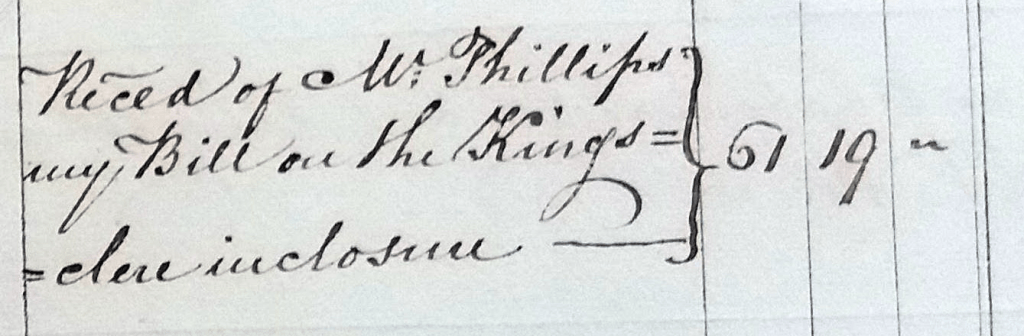 Reced of Mr. Phillips
my Bill on the Kings= 61 19 "
=clere inclosure